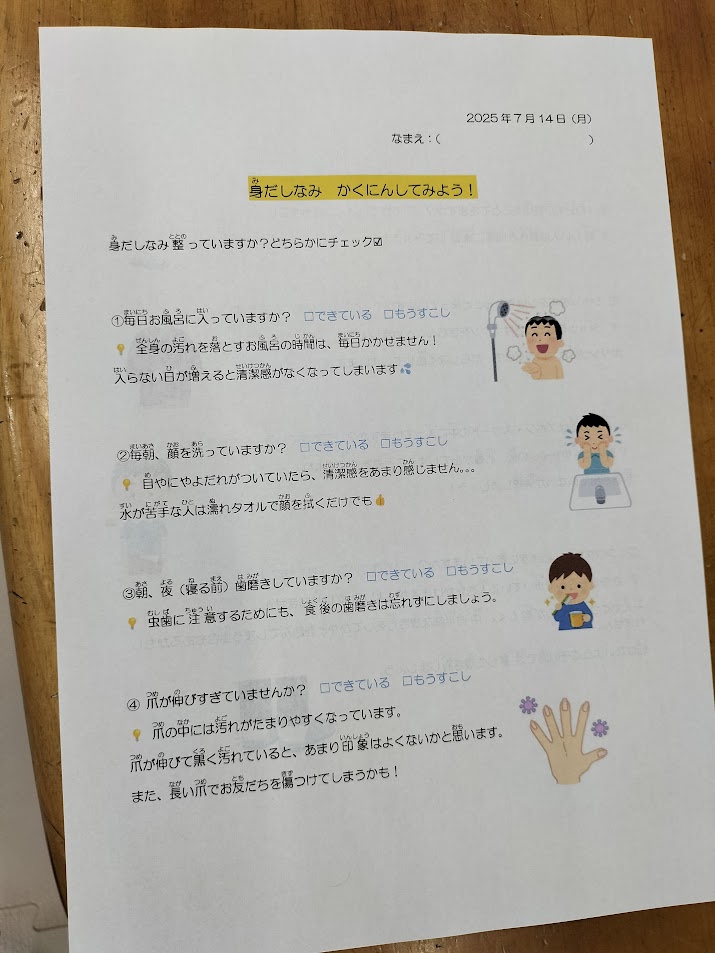 2025年7月14日（月）
なまえ：(　　　　　　　　　　　　)
身だしなみ　かくにんしてみよう！
身だしなみ整っていますか？どちらかにチェック☑
①毎日お風呂に入っていますか？　□できている　□もうすこし
💡 全身の汚れを落とすお風呂の時間は、毎日かかせません！
入らない日が増えると清潔感がなくなってしまいます💦
②毎朝、顔を洗っていますか？　□できている　□もうすこし
💡 目やにやよだれがついていたら、清潔感をあまり感じません。。。
水が苦手な人は濡れタオルで顔を拭くだけでも👍
③朝、夜（寝る前）歯磨きしていますか？　□できている　□もうすこし
💡 虫歯に注意するためにも、食後の歯磨きは忘れずにしましょう。
④ 爪が伸びすぎていませんか？　□できている　□もうすこし
💡 爪の中には汚れがたまりやすくなっています。
爪が伸びて黒く汚れていると、あまり印象はよくないかと思います。
また、長い爪でお友だちを傷つけてしまうかも！